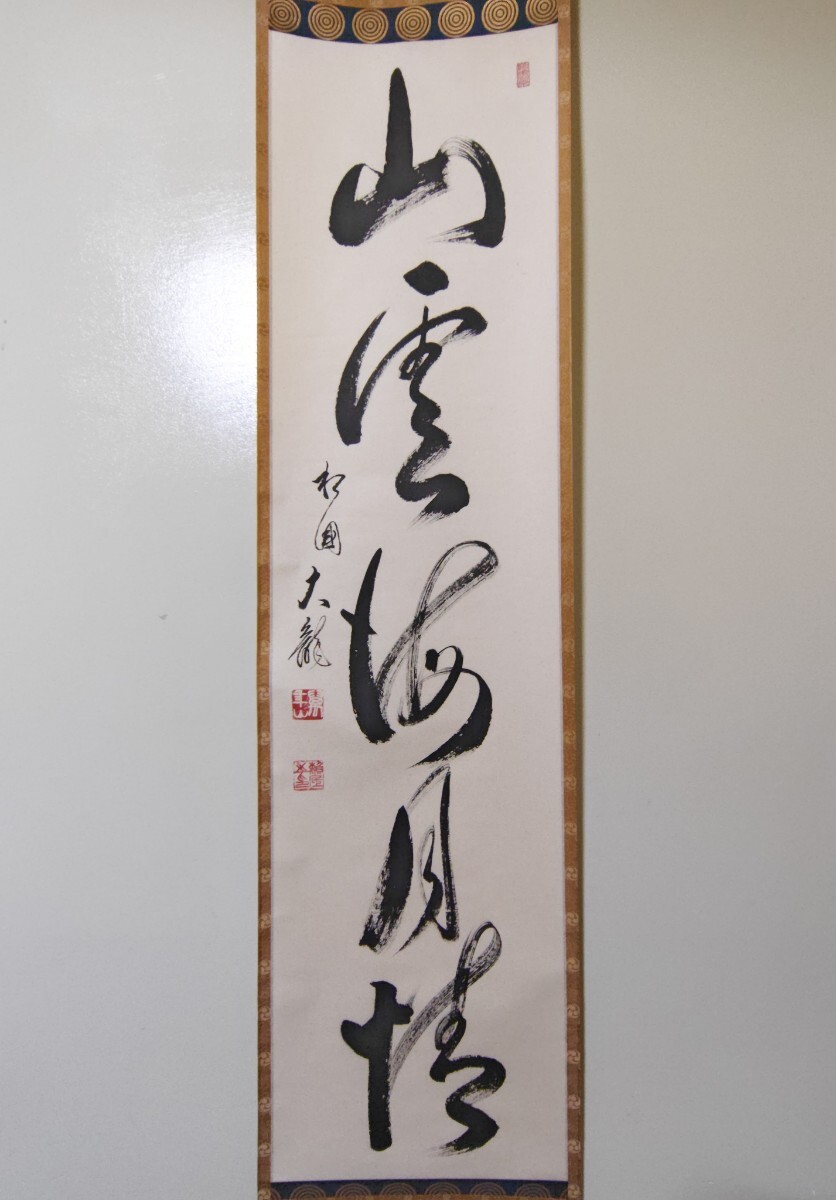 山雲海月情
相国大龍